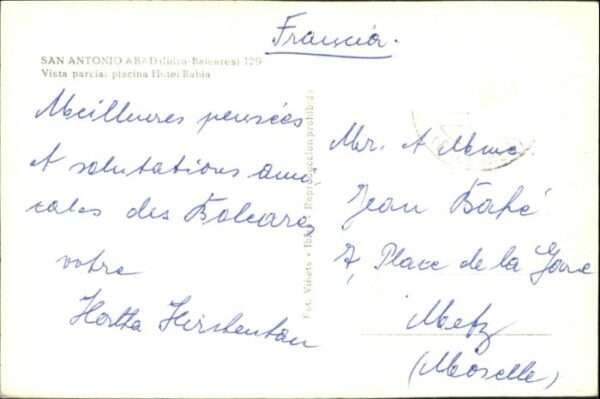 Francia.
SAN ANTONIO ABAD (Ibiza-Baleares) 129
Vista parcial piscina Hotel Bahia
Meilleures pensées
et salutations ami-
cales des Baleares
votre
Hertha
Fot. Viñets - Ibiza - Reproduccion prohibida
Mr. et Mme.
Jean
7, Place de la Gare
Metz
(Moselle)